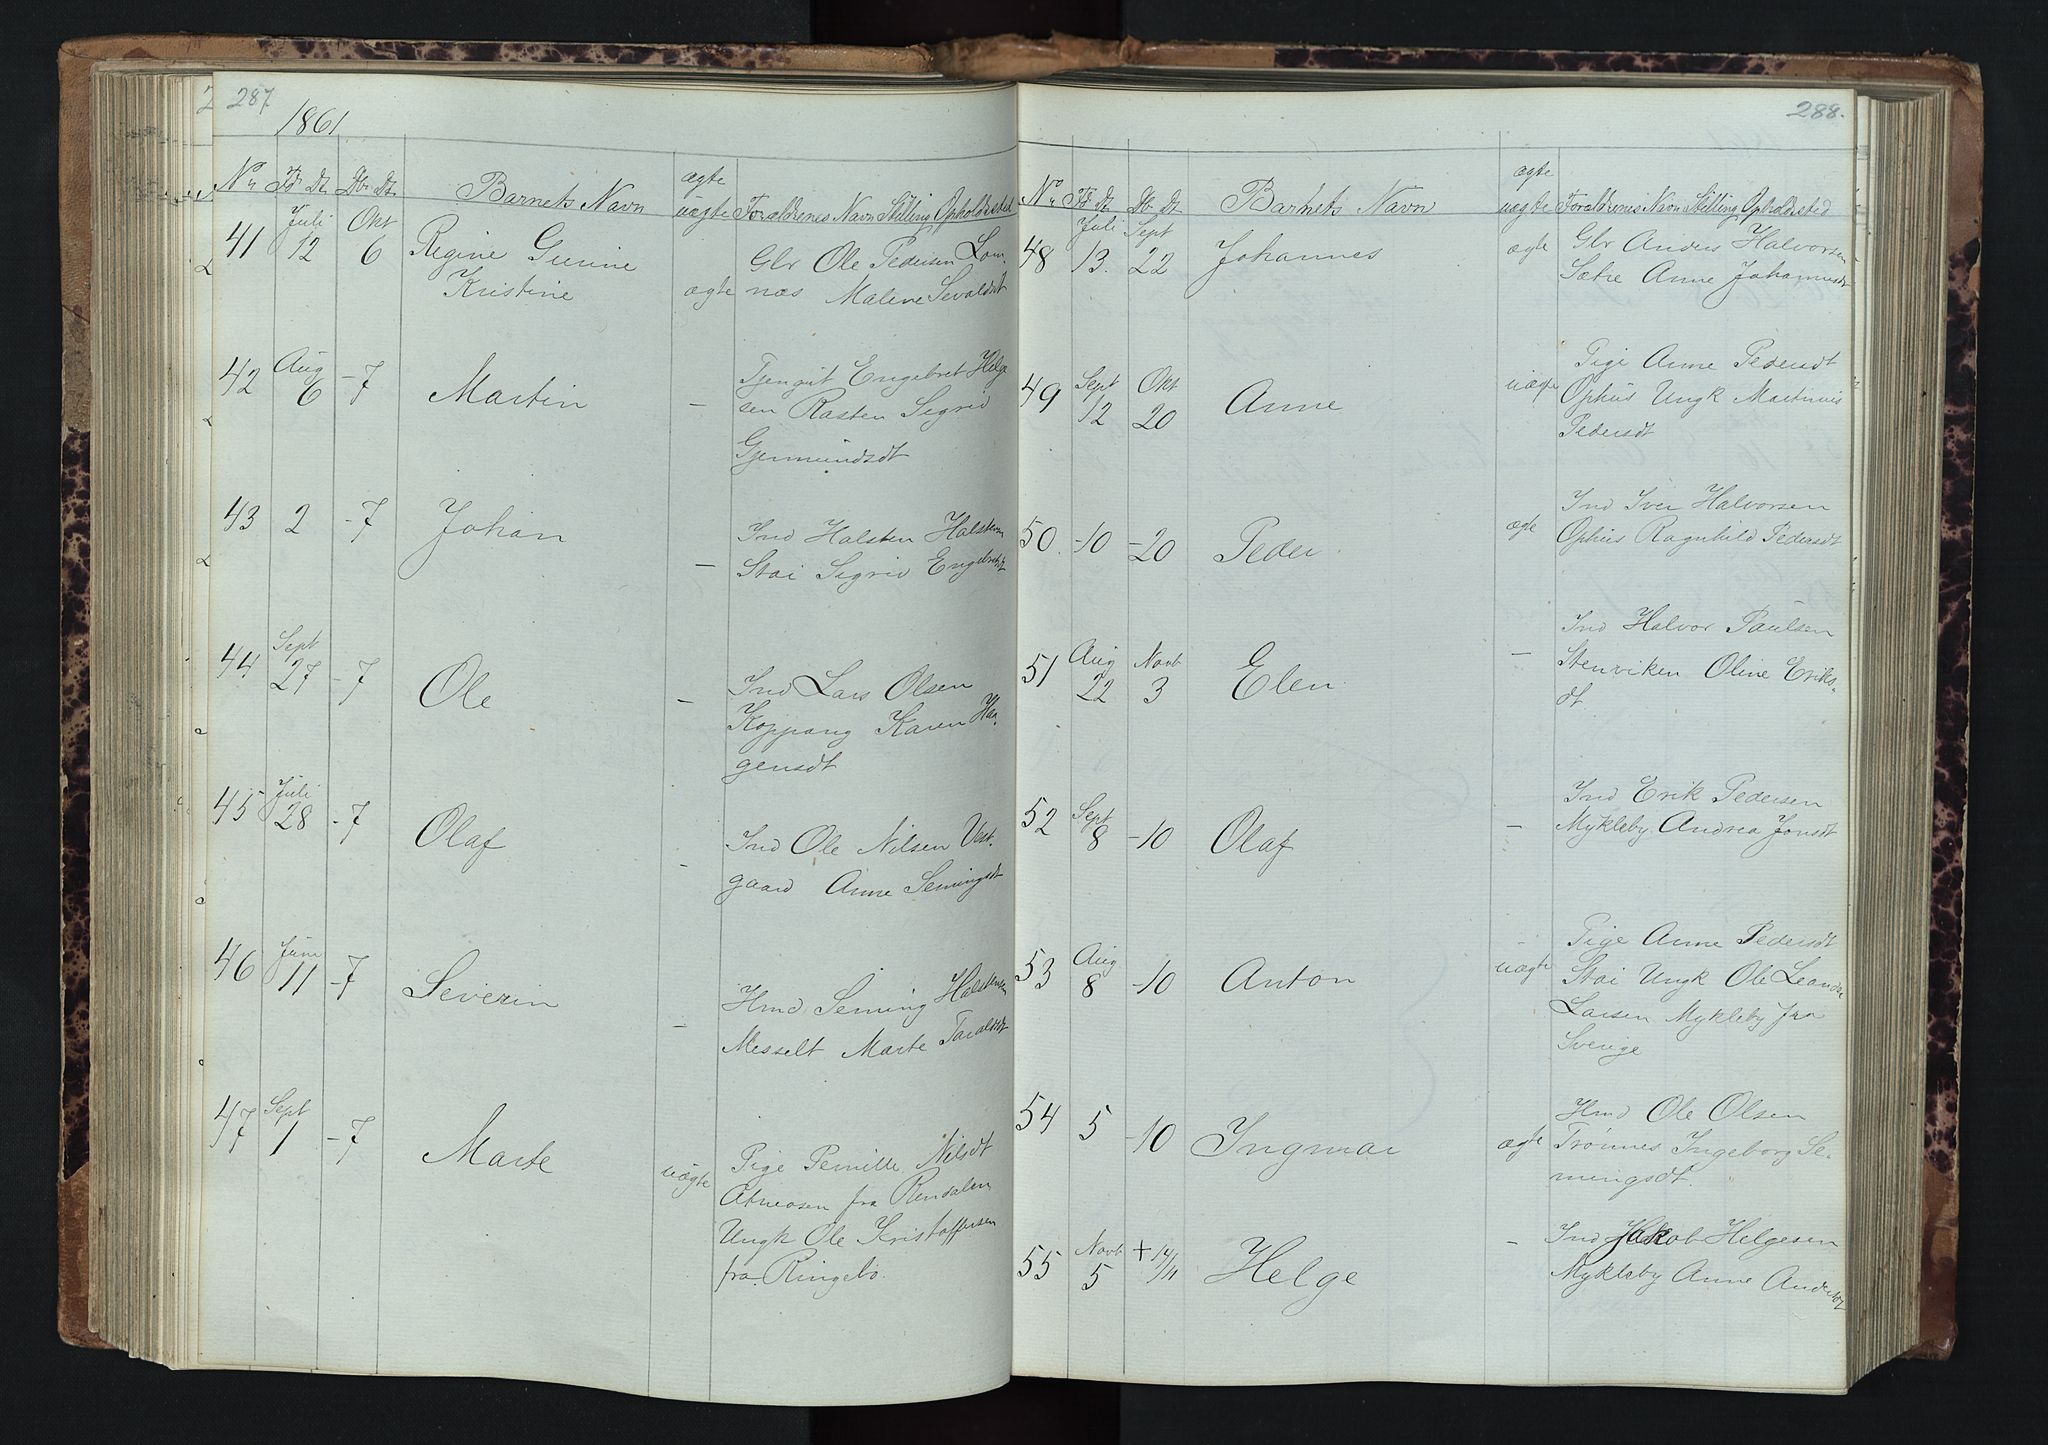 287
1861
Nr Fd Dt. Db. Dt. Barnets Navn ægte uægte Forældrenes Navn Stilling Opholdssted
41 Juli 12 Okt 6 Regine Gunine Glr Ole Pedersen Lom-
Kristine ægte næs Malene Sevaldsdt
42 Aug 6 -7 Martin - Tjengut Engebret Helge
sen Rasten Sigrid
Gjermundsdt
43 2 -7 Johan - Ind Halsten Halstensen
Stai Sigrid Engebretsdt
44 Sept 27 -7 Ole - Ind Lars Olsen
Koppang Karen Haa-
gensdt
45 Juli 28 -7 Olaf - Ind Ole Nilsen Vest-
gaard Anne Semingsdt
46 Juni 11 -7 Severin - Hmd Seming Halstensen
Messelt Marte Taraldsdt
47 Sept 1 -7 Marte uægte Pige Pernille Nilsdt
Atneosen fra Rendalen
Ungk Ole Kristoffersen
fra Ringebo.
288.
No Fd Dt. Db. Dt. Barnets Navn ægte uægte Forældrenes Navn Stilling Opholdssted
48 Juli 13. Sept 22 Johannes ægte Glr Anders Halvorsen
Sætre Anne Johannesdt
49 Sept 12 Okt 20 Anne uægte Pige Anne Pedersdt
Ophus Ungk Martinus
Pedersdt
50. -10 -20 Peder ægte Ind Iver Halvorsen
Ophus Ragnhild Pedersdt
51 Aug 22 Novb 3 Elen - Ind Halvor Paulsen
Stenviken Oline Eriks-
dt.
52 Sept 8 -10 Olaf - Ind Erik Pedersen
Mykleby Andrea Jonsdt
53 Aug 8 -10 Anton uægte Pige Anne Pedersdt
Stai Ungk Ole Leander
Larsen Mykleby fra
Sverige
54 5 -10 Ingmar ægte Hmd Ole Olsen
Trønnes Ingeborg Se-
mingsdt.
55 Novb 5 + 14/11 Helge - Ind Jakob Helgesen
Mykleby Anne